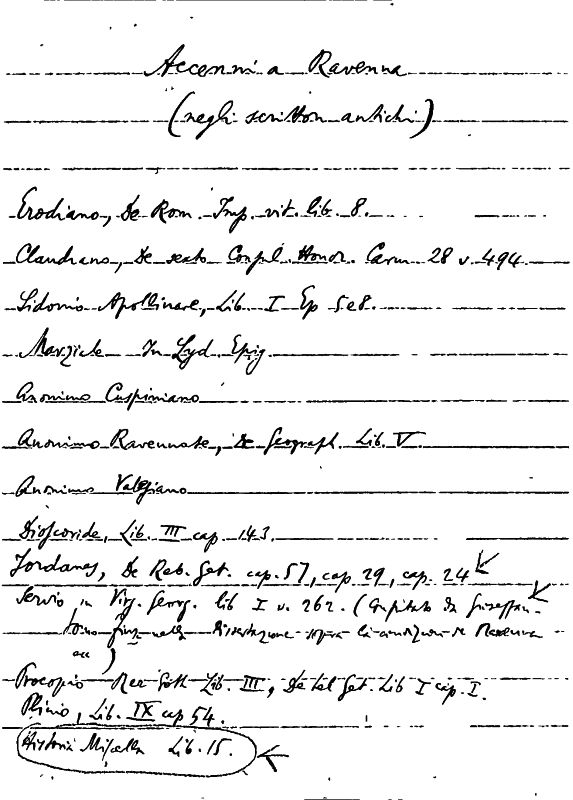 Accenni a Ravenna
(negli scrittori antichi)
Erodiano, De Rom. Imp. vit. lib. 8.
Claudiano, De sexto Consul. Honor. Carm 28 v. 494
Sidonio Apollinare, Lib. I Ep 5 e 8.
Marziale In Lyd. Epig.
Anonimo Cuspiniano
Anonimo Ravennate, de Geograph. Lib. V
Anonimo Valesiano
Dioscoride, Lib. III cap. 143.
Jordanes, De Reb. Get. cap. 57, cap. 29, cap. 24
Servio in Virg. Georg. lib I v. 262. (
nella Dissertazione sopra la condizione di Ravenna
ecc)
Procopio Rer Goth Lib. III, De bel Get. Lib I cap. I.
Plinio, Lib. IX cap 54.
Historia Miscella Lib. 15.